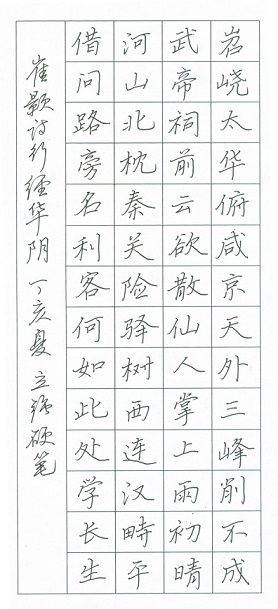 岧峣太华俯咸京天外三峰削不成
武帝祠前云欲散仙人掌上雨初晴
河山北枕秦关险驿树西连汉畤平
借问路旁名利客何如此处学长生
崔颢诗行经华阴 丁亥夏 立强硬笔